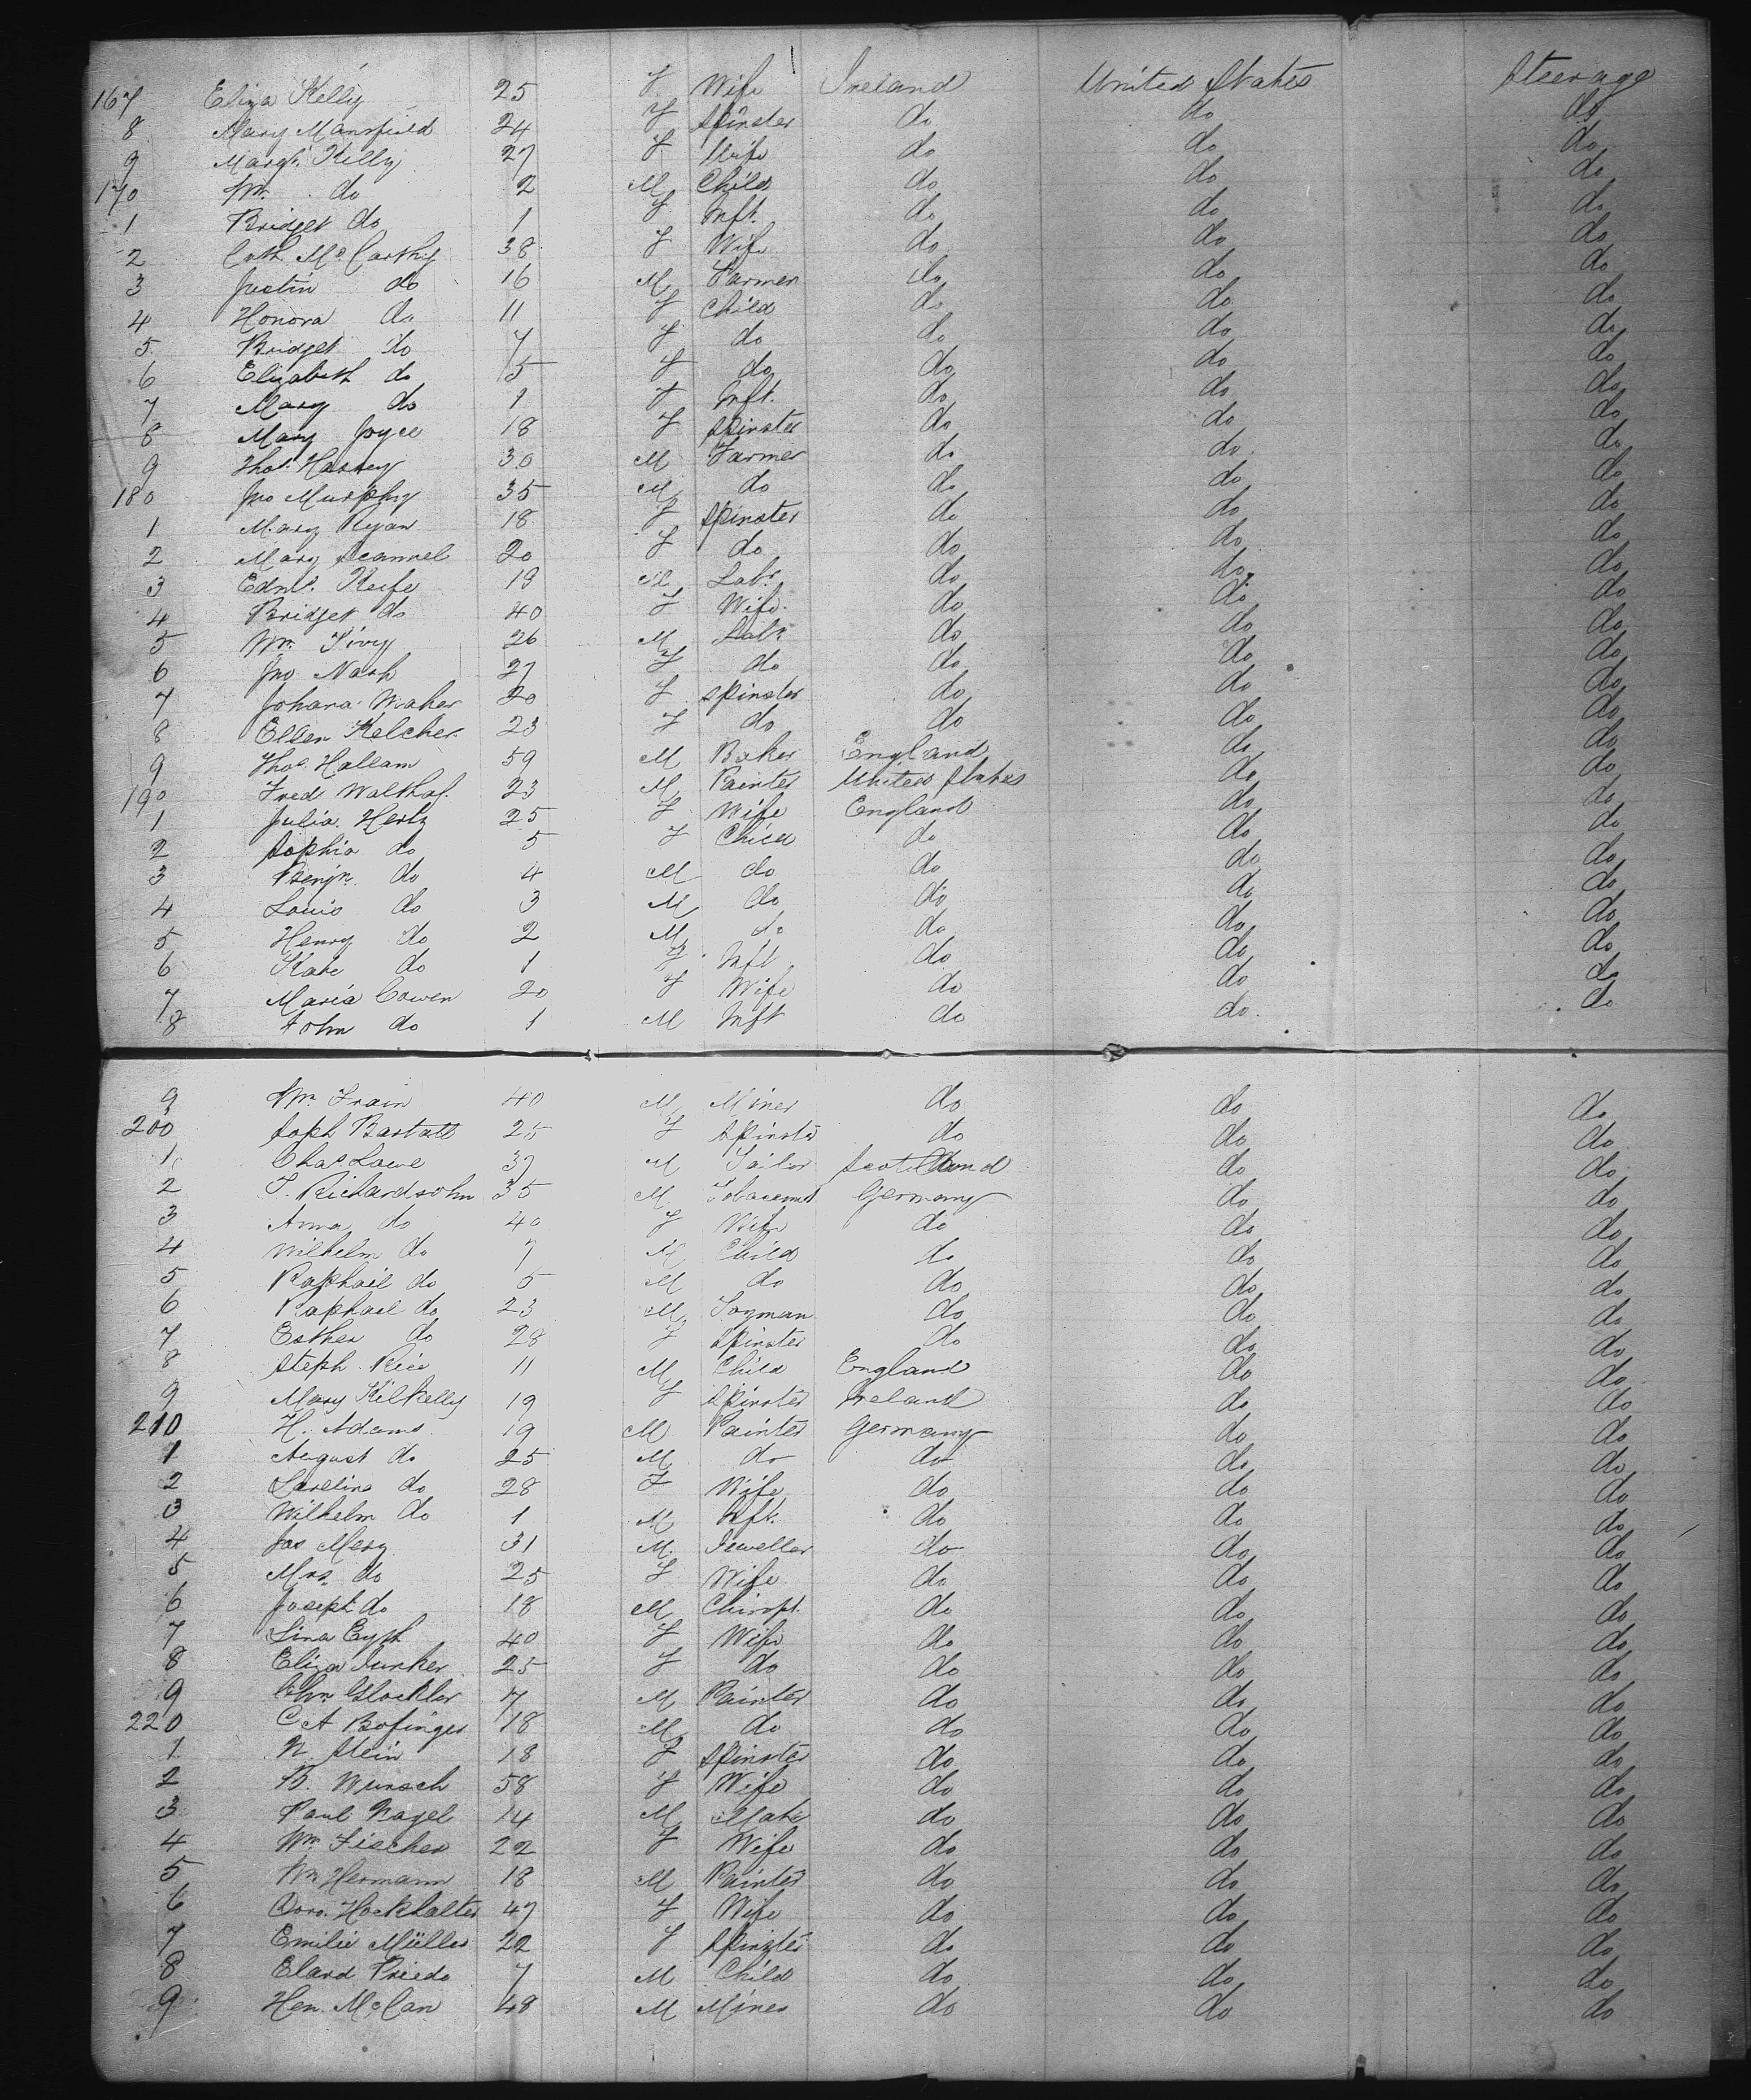 167 Eliza Kelly 25 F Wife Ireland United States Steerage
8 Mary Mansfield 24 F Spinster do do do
9 Margt. Kelly 27 F Wife do do do
170 Wm. do 2 M Child do do do
1 Bridget do 1 F Inft. do do do
2 Cath Mc Carthy 38 F Wife do do do
3 Justin do 16 M Farmer do do do
4 Honora do 11 F Child do do do
5 Bridget do 7 F do do do do
6 Elizabeth do 5 F do do do do
7 Mary do 1 F Inft. do do do
8 Mary Joyce 18 F Spinster do do do
9 Thos. 30 M Farmer do do do
180 Jno Murphy 35 M do do do do
1 Mary Ryan 18 F Spinster do do do
2 Mary Scannel 20 F do do do do
3 Edmd. Keife 19 M Labr. do do do
4 Bridget do 40 F Wife do do do
5 Wm. 26 M Labr. do do do
6 Jno Nash 27 F do do do do
7 Johana Maher 20 F Spinster do do do
8 Ellen Kelcher 23 F do do do do
9 Thos. Hallam 59 M Baker England do do
190 Fred Walthaf. 23 M Painter United States do do
1 Julia Hertz 25 F Wife England do do
2 Sophia do 5 F Child do do do
3 Benjn. do 4 M do do do do
4 Louis do 3 M do do do do
5 Henry do 2 M do do do do
6 Kate do 1 F Inft. do do do
7 Maria Cowen 20 F Wife do do do
8 John do 1 M Inft do do do
9 Wm. Train 40 M Miner do do do
200 Soph 25 F Spinster do do do
1 Chas. Lowe 37 M Tailor Scotland do do
2 T. Richardsohn 35 M Germany do do
3 Anna do 40 F Wife do do do
4 Wilhelm do 7 M Child do do do
5 Raphael do 5 M do do do do
6 Raphael do 23 M do do do
7 Esther do 28 F Spinster do do do
8 Steph. Rice 11 M Child England do do
9 Mary Kilkelly 19 F Spinster Ireland do do
210 H. Adams 19 M Painter Germany do do
1 August do 25 M do do do do
2 Caroline do 28 F Wife do do do
3 Wilhelm do 1 M Inft. do do do
4 Jas Merz 31 M Jeweller do do do
5 Mrs. do 25 F Wife do do do
6 Joseph do 18 M Chiropt. do do do
7 Lina Eyth 40 F Wife do do do
8 Eliza Junker 25 F do do do do
9 Chr. Glockler 17 M Painter do do do
220 C A Bofinger 18 M do do do do
1 N. Stein 18 F Spinster do do do
2 B. Wunsch 58 F Wife do do do
3 Paul Nagel 14 M do do do
4 Wm. Fischer 22 F Wife do do do
5 Wm. Hermann 18 M Painter do do do
6 Doro. Hockhalter 47 F Wife do do do
7 Emilie Müller 22 F Spinster do do do
8 Elard Friedo 7 M Child do do do
9 Hen. McCan 48 M Miner do do do